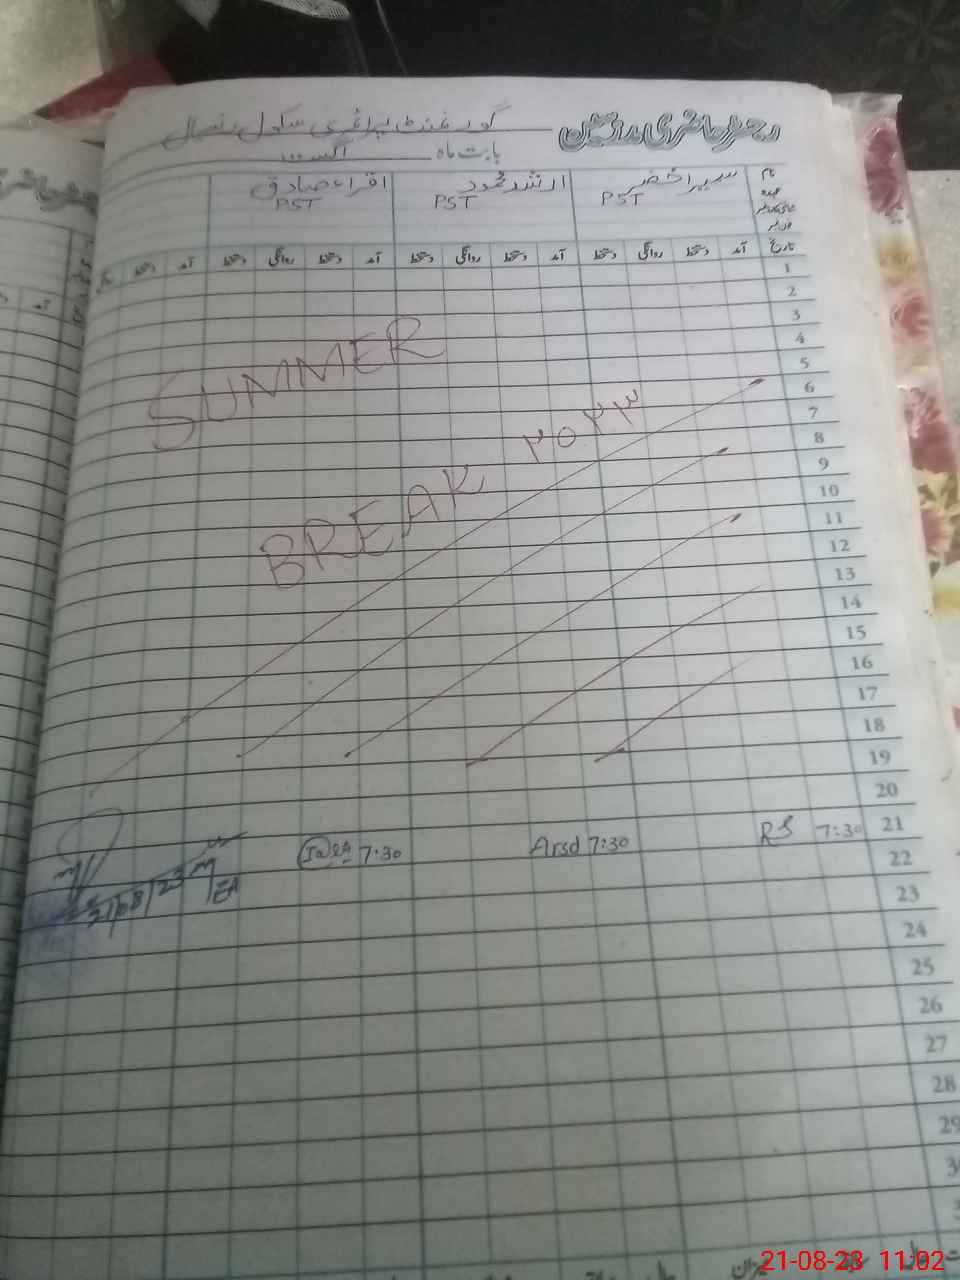 رجسٹر حاضری مدرسین گورنمنٹ پرائمری سکول
بابت ماہ اگست
نام سمیرا خضر ارشد محمود اقراء صادق
عہدہ PST PST PST
تاریخ آمد دستخط روانگی دستخط آمد دستخط روانگی دستخط آمد دستخط روانگی دستخط آمد دستخط
1
2
3
4
5
6
7
8
9
10
11
12
13
14
15
16
17
18
19
20
21
22
23
24
25
26
27
28
29
SUMMER
BREAK ۲۰۲۳
7:30
Arsd 7:30
7:30
21/08/23
21-08-23 11:02